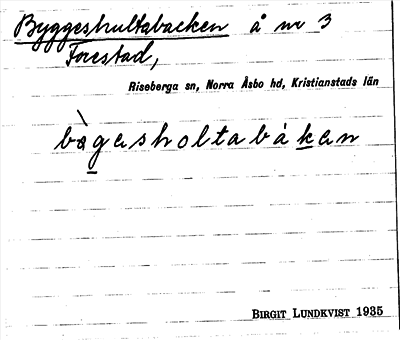 Byggeshultabacken å nr 3
Forestad,
Riseberga sn, Norra Åsbo hd, Kristianstads län
bàgesholtabàkan
BIRGIT LUNDKVIST 1935